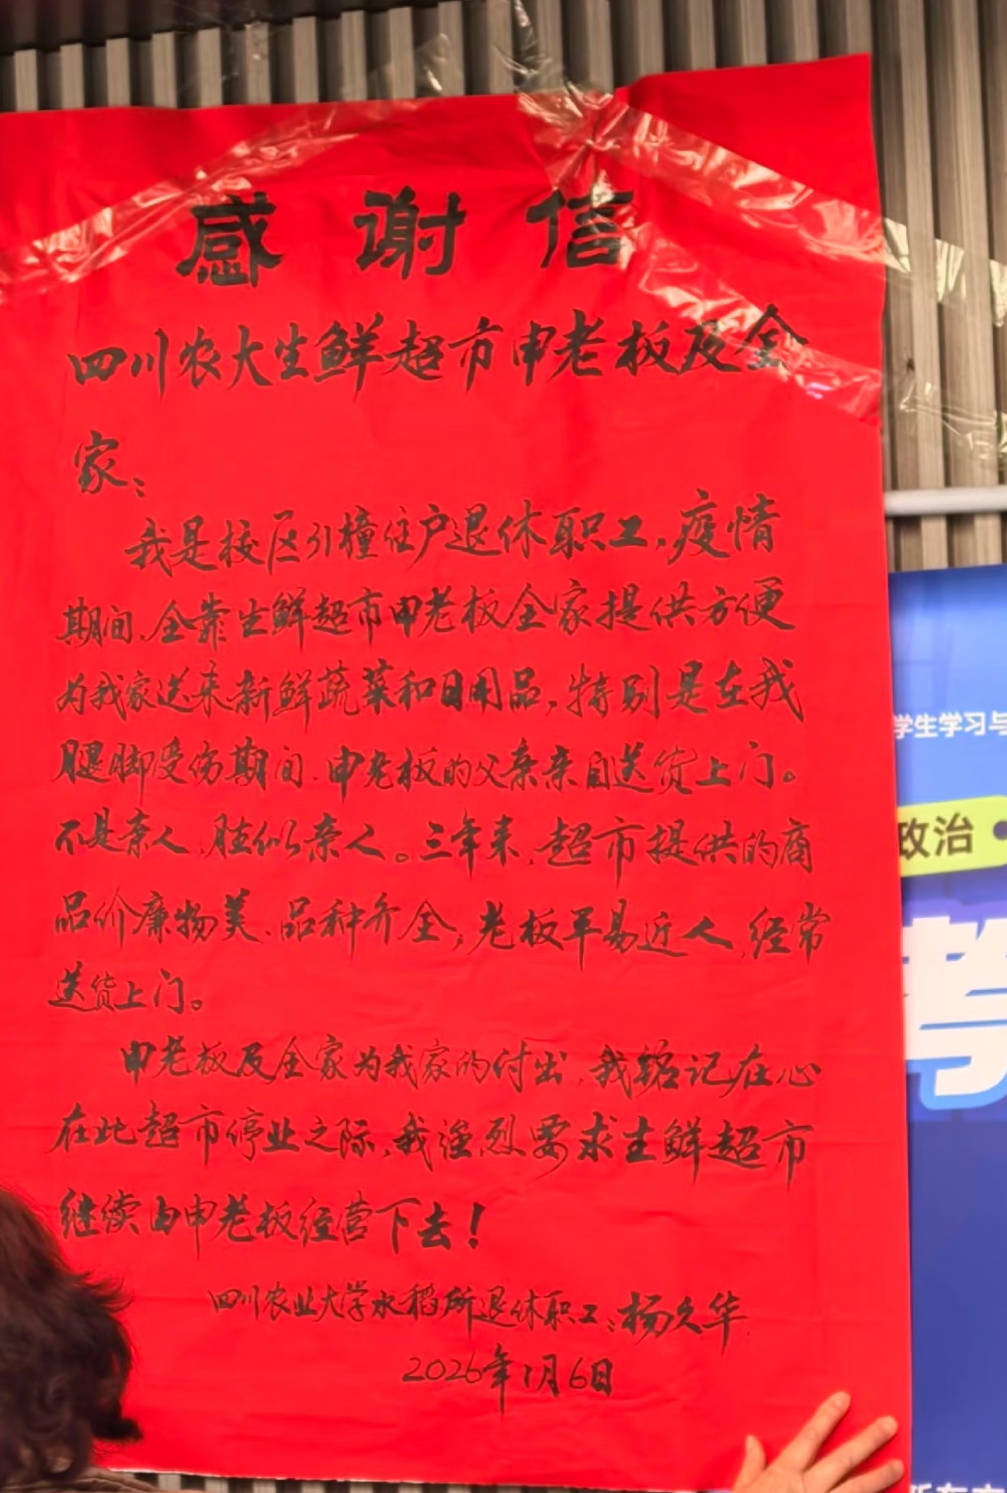 感谢信
四川农大生鲜超市申老板及全
家：
我是校区引撞住户退休职工，疫情
期间、全靠生鲜超市申老板全家提供方便
为我家送来新鲜蔬菜和日用品，特别是在我
腿脚受伤期间、申老板的父亲亲自送货上门。
不是亲人，胜似亲人。三年来，超市提供的商
品价廉物美、品种齐全；老板平易近人，经常
送货上门。
申老板及全家为我家的付出，我铭记在心
在此超市停业之际，我强烈要求生鲜超市
继续由申老板经营下去！
四川农业大学水稻所退休职工：杨久华
2026年1月6日
学生学习与
政治
考